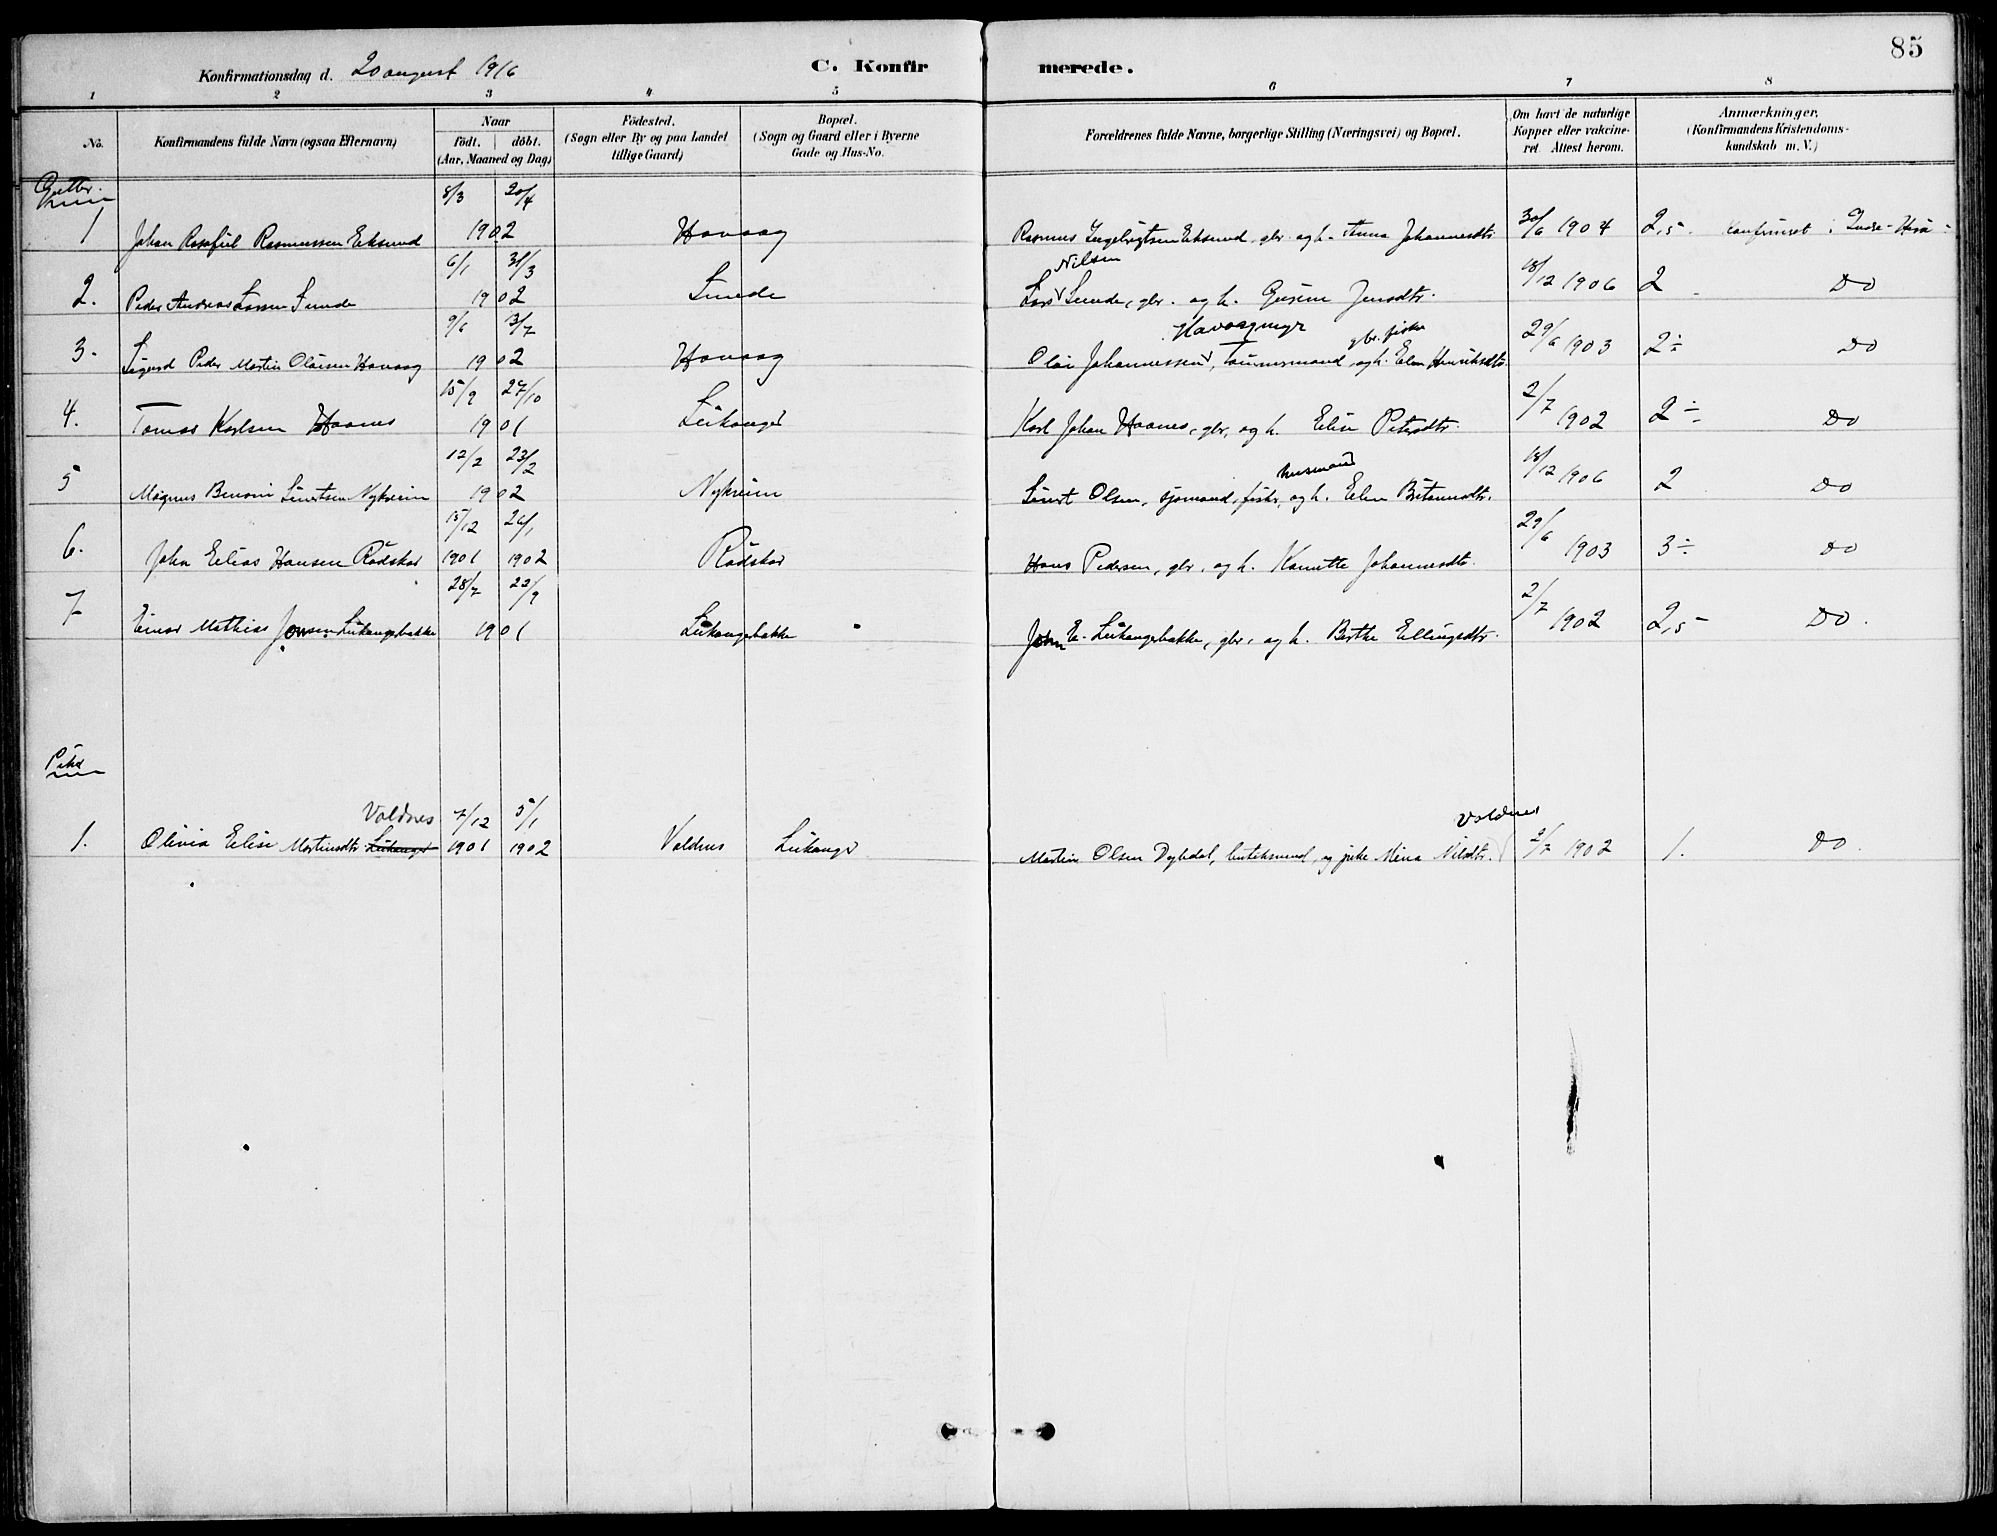 85
Konfirmationsdag d. 20 august 1916
C. Konfirmerede.
1 2 3 4 5 6 7 8
No.
Konfirmandens fulde Navn (ogsaa Efternavn)
Naar
födt. | döbt.
(Aar, Maaned og Dag)
Födested.
(Sogn eller By og paa Landet
tillige Gaard)
Bopæl.
(Sogn og Gaard eller i Byerne
Gade og Hus-No.
Forældrenes fulde Navne, borgerlige Stilling (Næringsvei) og Bopæl.
Om havt de naturlige
Kopper eller vakcine-
ret. Attest herom.
Anmærkninger.
(Konfirmandens Kristendoms-
kundskab m. V.)
Gutter.
8/3 20/4
1 Johan Rasmussen Eksund 1902 Havaag Rasmus Eksund, gbr. og h. Anna Johannesdtr 30/6 1904 2,5 Konfirmert i Indre-Herö
6/1 31/3 Nilsen
2. Peder Andreas Larsen Sunde 1902 Sunde Lars Sunde, gbr. og h. Gurine Jensdtr. 18/12 1906 2 Do
9/6 3/7 Havaagmyr gbr. fisker
3. Sigurd Peder Martin Olaisen Havaag 1902 Havaag Olai Johannessen, Tømmermand, og h. Elen Henriksdtr. 29/6 1903 2÷ Do
15/9 27/10
4. Tomas Karlsen Haanes 1901 Leikanger Karl Johan Haanes, gbr. og h. Elise Petersdtr. 2/7 1902 2÷ Do
12/2 23/2 husmand
5 Magnus Benoni Sivertsen Nykreim 1902 Nykreim Sivert Olsen, sjømand, fisker, og h. Elen 18/12 1906 2 Do
15/12 26/1
6. John Elias Hansen Rødskar 1901 1902 Rødskar Hans Pedersen, gbr. og h. Johannesdtr. 29/6 1903 3÷ Do
28/7 22/9
7 Einar Mathias Jonsen Leikangerbakke 1901 Leikangerbakke John E. Leikangerbakke, gbr. og h. Berthe Ellingsdtr. 2/7 1902 2,5 Do.
Piker
Voldnes 7/12 5/1 Voldnes
1. Olivia Elise Martinsdtr. Leikanger 1901 1902 Voldnes Leikanger Martin Olsen Dybdal, og pike Mina Nilsdtr. 2/7 1902 1. Do.